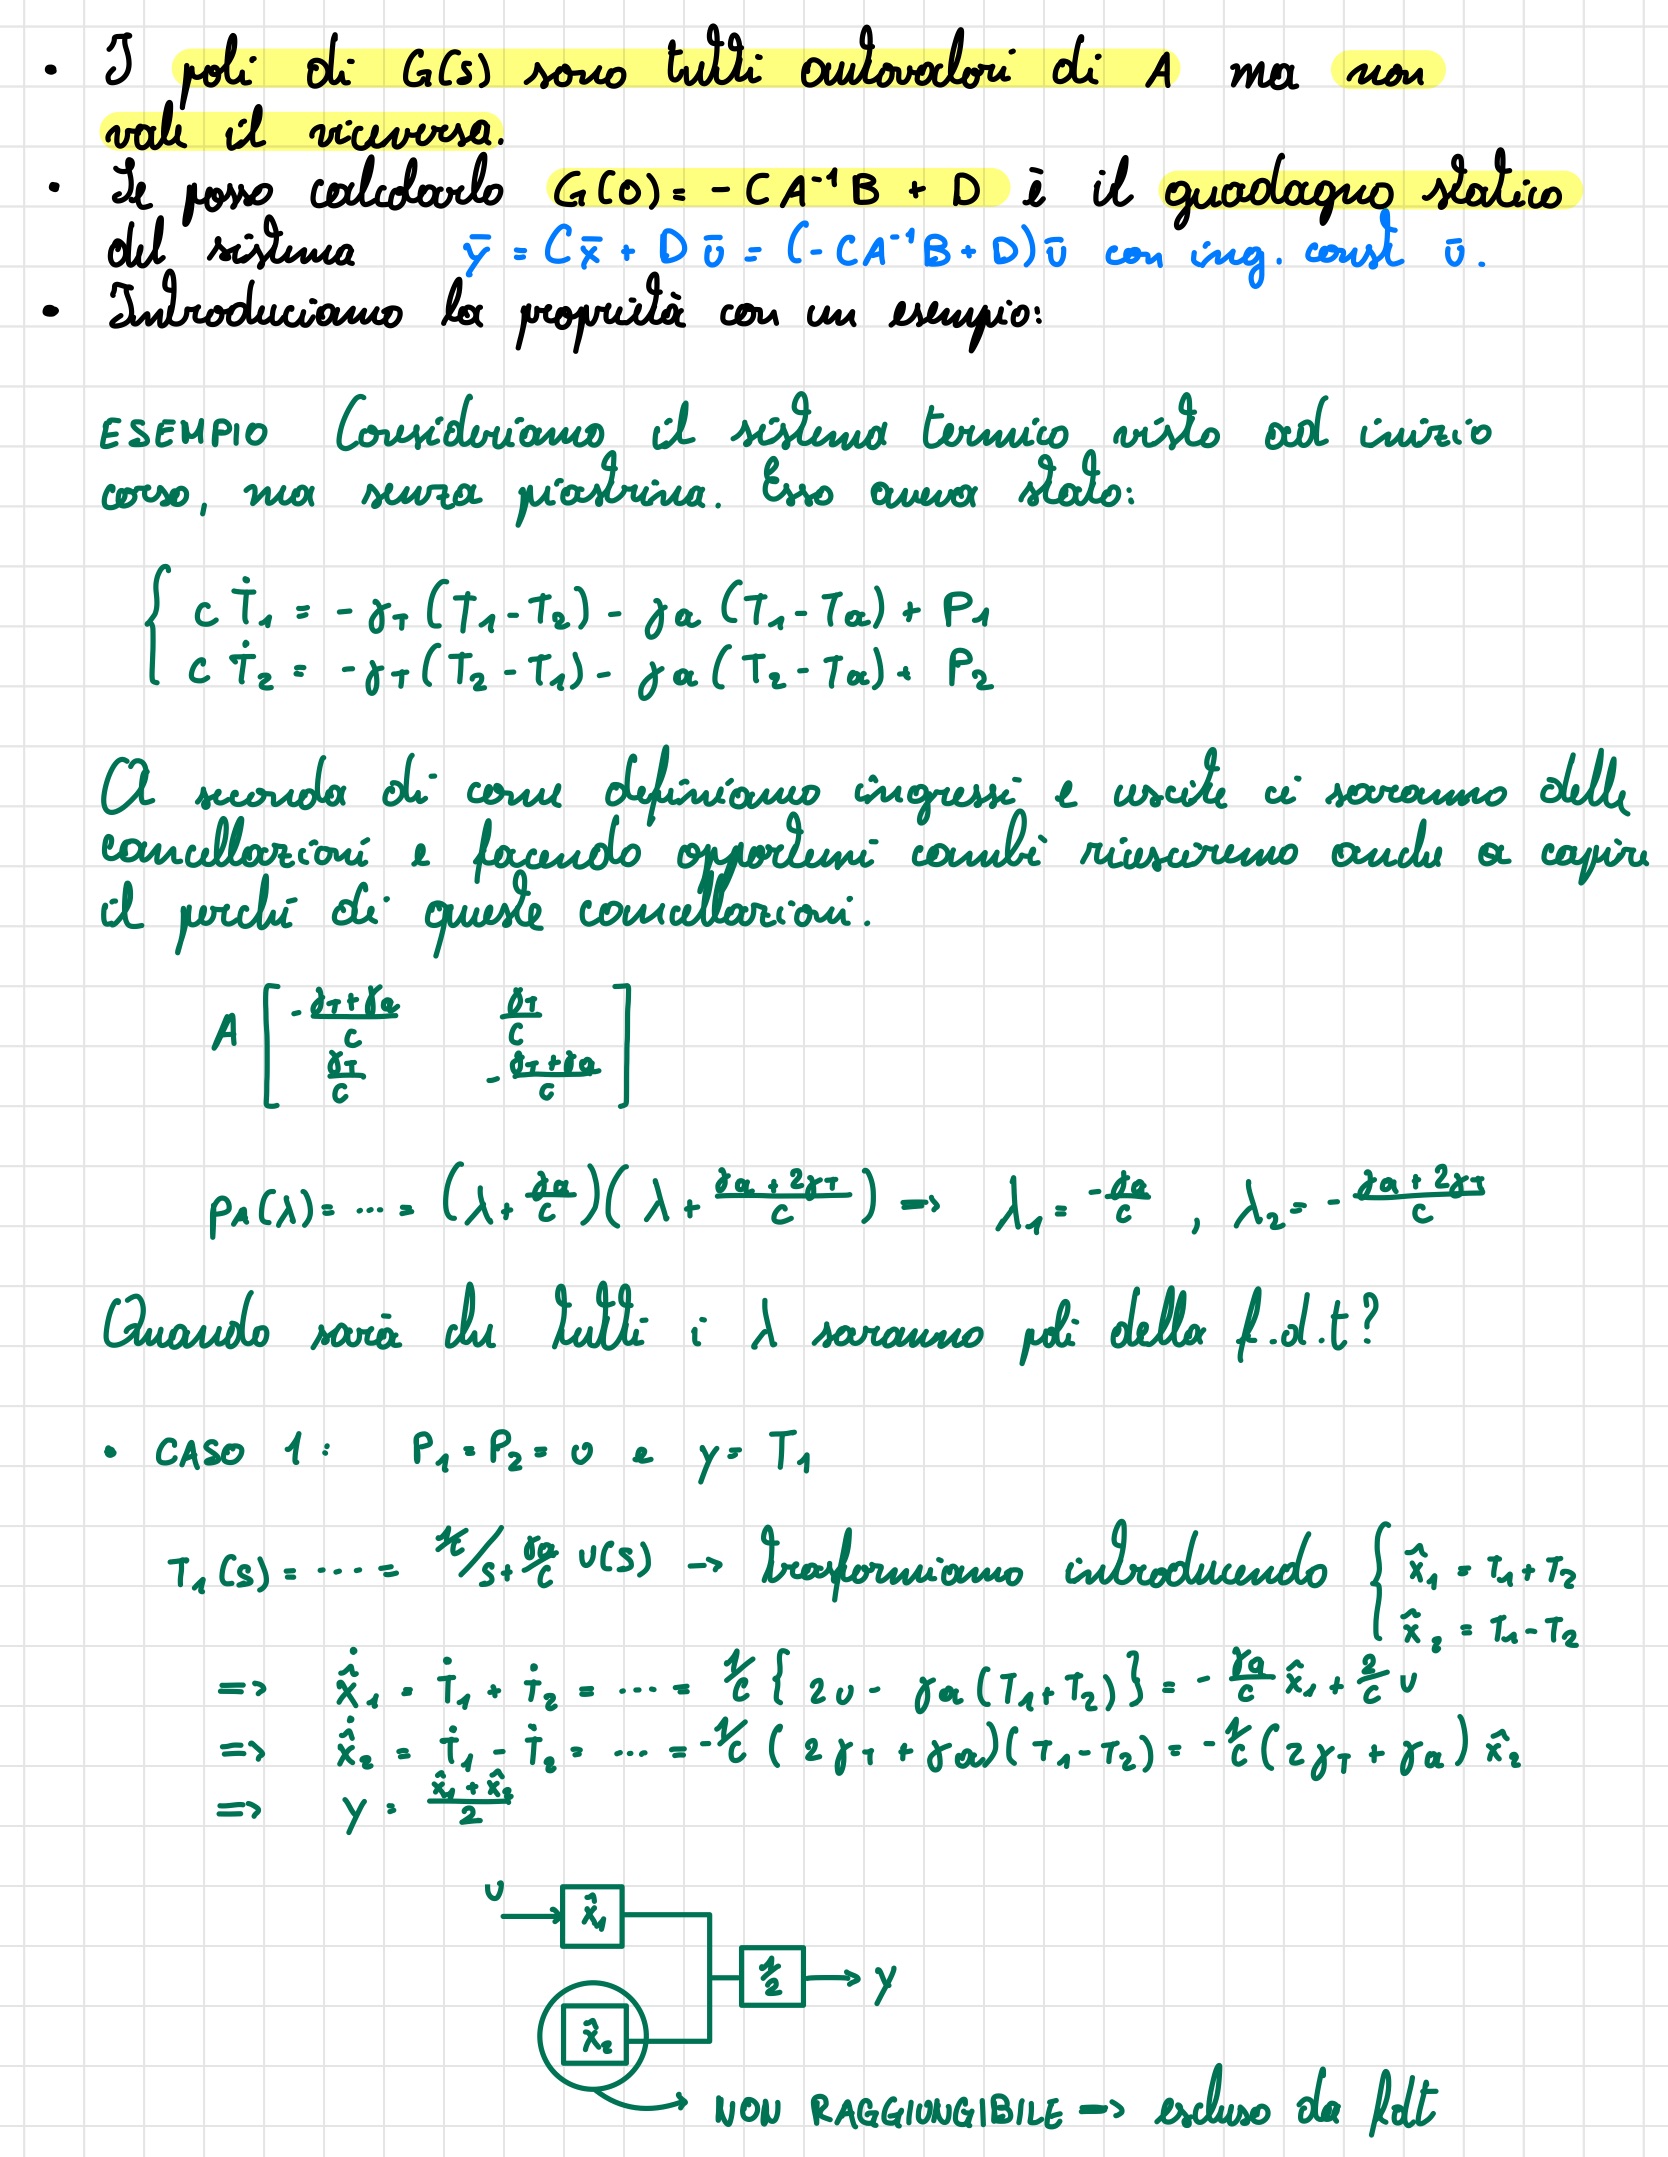 • I poli di G(s) sono tutti autovalori di A ma non
vale il viceversa.
• Se posso calcolarlo G(0) = - CA⁻¹B + D è il guadagno statico
del sistema ȳ = Cx̄ + Dū = (-CA⁻¹B + D)ū con ing. cost ū.
• Introduciamo la proprietà con un esempio:
ESEMPIO Consideriamo il sistema termico visto ad inizio
corso, ma senza piastrina. Esso aveva stato:
{ c Ṫ₁ = - γ_T (T₁ - T₂) - γa (T₁ - Ta) + P₁
c Ṫ₂ = - γ_T (T₂ - T₁) - γa (T₂ - Ta) + P₂
A seconda di come definiamo ingressi e uscite ci saranno delle
cancellazioni e facendo opportuni cambi riusciremo anche a capire
il perché di queste cancellazioni.
A [ -(γ_T+γa)/c γ_T/c
γ_T/c -(γ_T+γa)/c ]
p_A(λ) = ... = (λ + γa/c)(λ + (γa + 2γ_T)/c) => λ₁ = -γa/c , λ₂ = -(γa + 2γ_T)/c
Quando sarà che tutti i λ saranno poli della f.d.t?
• CASO 1: P₁ = P₂ = u e y = T₁
T₁(s) = .... = 1/c / s + γa/c U(s) -> trasformiamo introducendo { x̂₁ = T₁ + T₂
x̂₂ = T₁ - T₂
=> x̂̇₁ = Ṫ₁ + Ṫ₂ = .... = 1/c { 2u - γa (T₁+T₂) } = - γa/c x̂₁ + 2/c u
=> x̂̇₂ = Ṫ₁ - Ṫ₂ = .... = -1/c (2γ_T + γa)(T₁ - T₂) = -1/c (2γ_T + γa) x̂₂
=> y = (x̂₁ + x̂₂)/2
u
x̂₁
1/2 y
x̂₂
NON RAGGIUNGIBILE => escluso da fdt